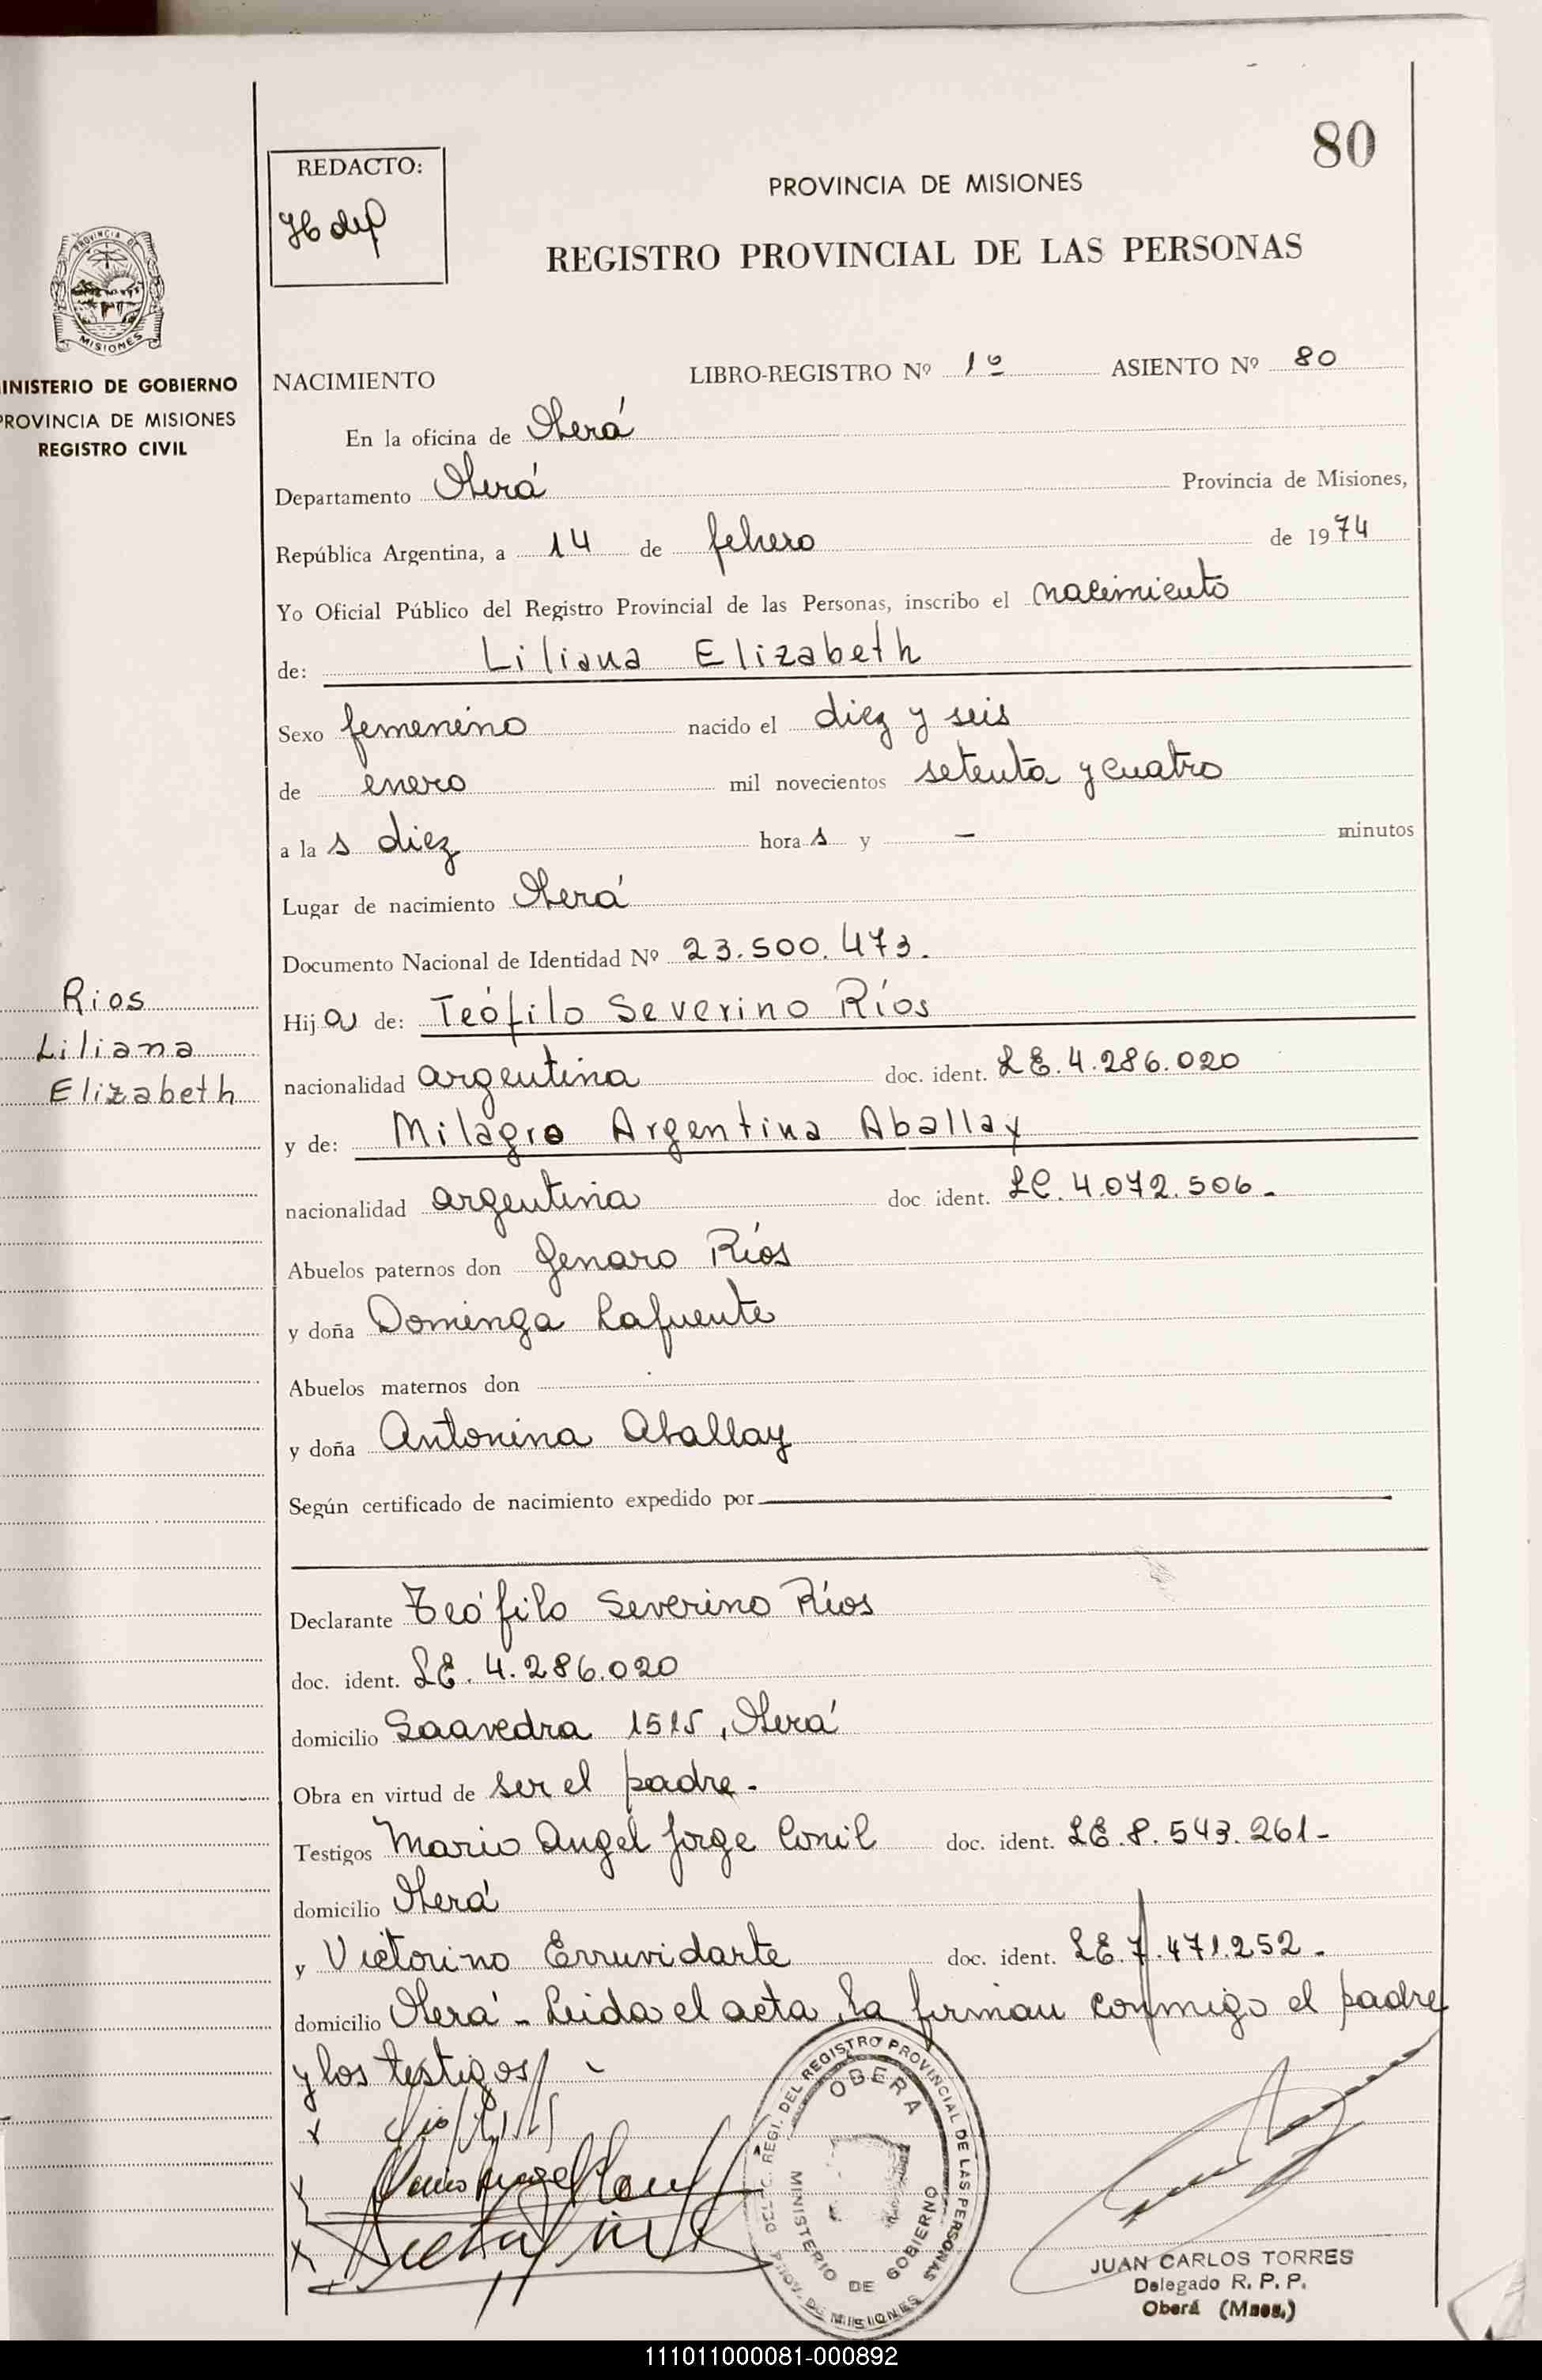 80
REDACTO:
PROVINCIA DE MISIONES
REGISTRO PROVINCIAL DE LAS PERSONAS
PROVINCIA DE
MISIONES
INISTERIO DE GOBIERNO
PROVINCIA DE MISIONES
REGISTRO CIVIL
NACIMIENTO LIBRO-REGISTRO Nº 1º ASIENTO Nº 80
En la oficina de Oberá
Departamento Oberá Provincia de Misiones,
República Argentina, a 14 de febrero de 1974
Yo Oficial Público del Registro Provincial de las Personas, inscribo el nacimiento
de: Liliana Elizabeth
Sexo femenino nacido el diez y seis
de enero mil novecientos setenta y cuatro
a las diez horas y – minutos
Lugar de nacimiento Oberá
Documento Nacional de Identidad Nº 23.500.473.
Rios
Liliana
Elizabeth
Hija de: Teófilo Severino Ríos
nacionalidad argentina doc. ident. LE. 4.286.020
y de: Milagro Argentina Aballay
nacionalidad argentina doc ident. LC. 4.072.506-
Abuelos paternos don Genaro Ríos
y doña Dominga Lafuente
Abuelos maternos don
y doña Antonina Aballay
Según certificado de nacimiento expedido por
Declarante Teófilo Severino Ríos
doc. ident. LE. 4.286.020
domicilio Saavedra 1515, Oberá
Obra en virtud de ser el padre-
Testigos Mario Angel Jorge Conil doc. ident. LE. 8.543.261-
domicilio Oberá
y Victorino Erruvidarte doc. ident. LE 7.471.252-
domicilio Oberá - Leida el acta, la firman conmigo el padre
y los testigos
REGI. DEL REGISTRO PROVINCIAL DE LAS PERSONAS
OBERA
MINISTERIO DE GOBIERNO
PROV. DE MISIONES
JUAN CARLOS TORRES
Delegado R. P. P.
Oberá (Mnes.)
111011000081-000892